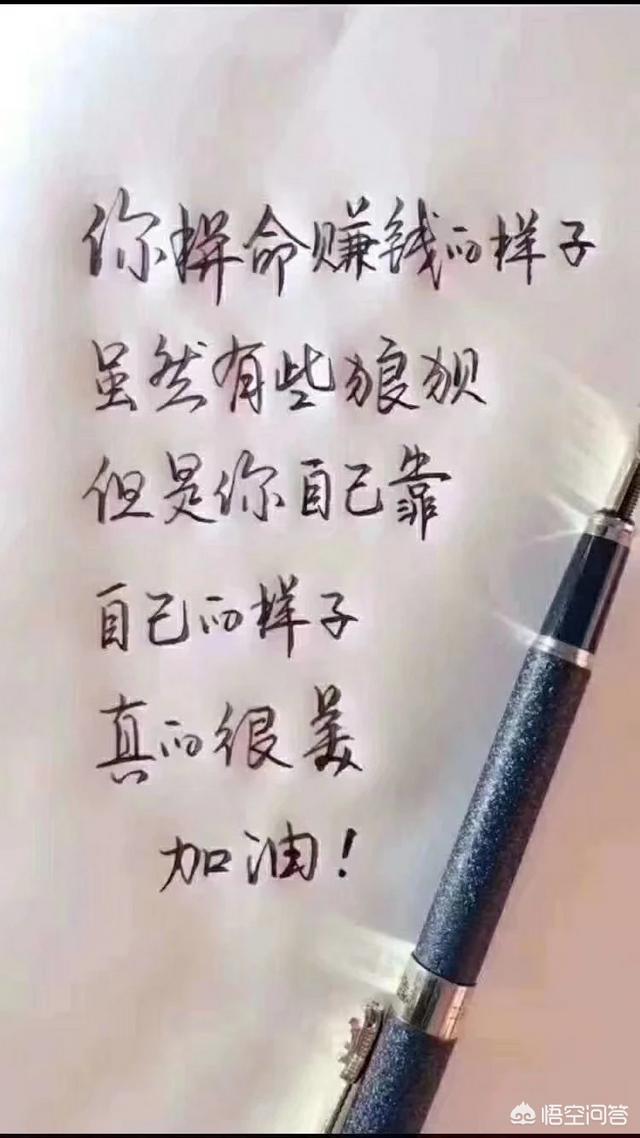 你拼命赚钱的样子
虽然有些狼狈
但是你自己靠
自己的样子
真的很美
加油!
悟空问答